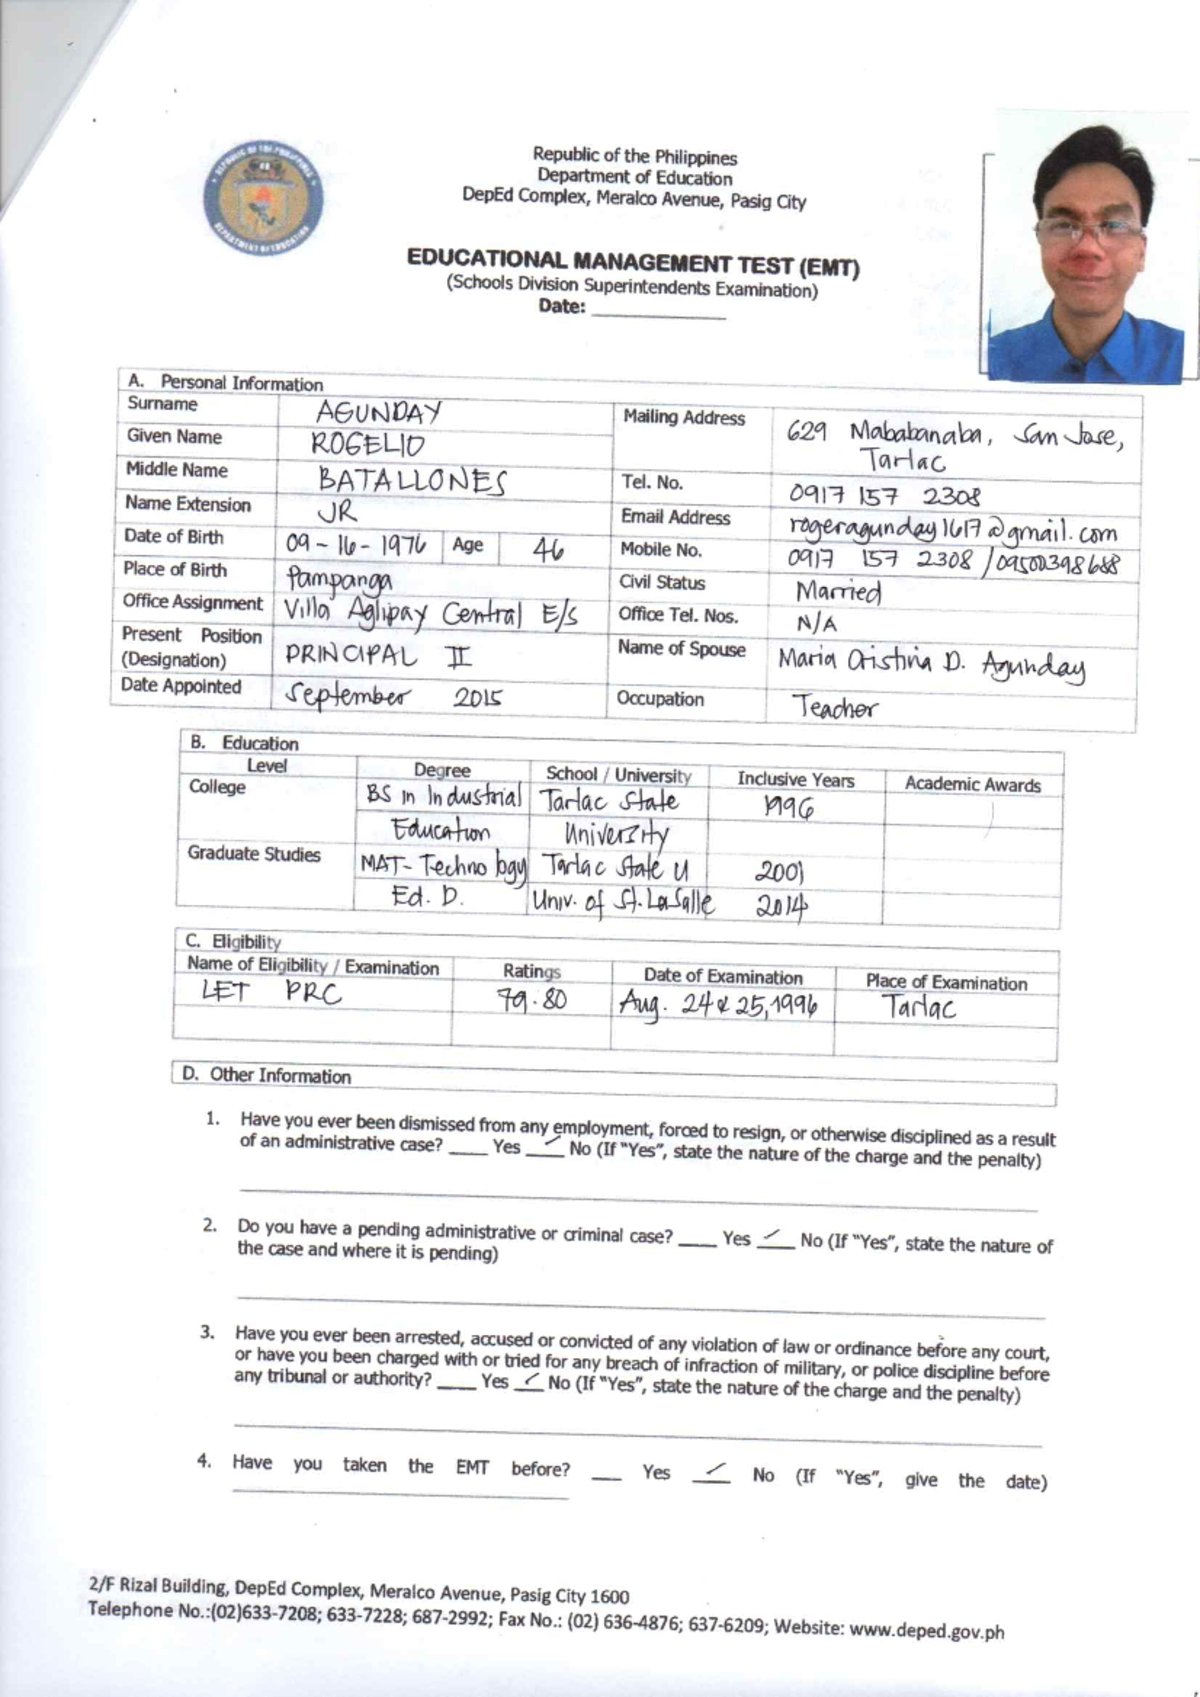 Republic of the Philippines
Department of Education
DepEd Complex, Meralco Avenue, Pasig City
EDUCATIONAL MANAGEMENT TEST (EMT)
(Schools Division Superintendents Examination)
Date: ____________
A. Personal Information
Surname AGUNDAY
Given Name ROGELIO
Middle Name BATALLONES
Name Extension JR
Date of Birth 09-16-1976 Age 46
Place of Birth Pampanga
Office Assignment Villa Aglipay Central E/S
Present Position (Designation) PRINCIPAL II
Date Appointed September 2015
Mailing Address 629 Mababanaba, San Jose, Tarlac
Tel. No. 0917 157 2308
Email Address rogeragunday1617@gmail.com
Mobile No. 0917 157 2308 / 09500398688
Civil Status Married
Office Tel. Nos. N/A
Name of Spouse Maria Cristina D. Agunday
Occupation Teacher
B. Education
Level Degree School / University Inclusive Years Academic Awards
College BS in Industrial Tarlac State 1996
Education University
Graduate Studies MAT-Technology Tarlac State U 2001
Ed. D. Univ. of St. LaSalle 2014
C. Eligibility
Name of Eligibility / Examination Ratings Date of Examination Place of Examination
LET PRC 79.80 Aug. 24 & 25, 1996 Tarlac
D. Other Information
1. Have you ever been dismissed from any employment, forced to resign, or otherwise disciplined as a result
of an administrative case? ____ Yes _✓_ No (If "Yes", state the nature of the charge and the penalty)
2. Do you have a pending administrative or criminal case? ____ Yes _✓_ No (If "Yes", state the nature of
the case and where it is pending)
3. Have you ever been arrested, accused or convicted of any violation of law or ordinance before any court,
or have you been charged with or tried for any breach of infraction of military, or police discipline before
any tribunal or authority? ____ Yes _✓_ No (If "Yes", state the nature of the charge and the penalty)
4. Have you taken the EMT before? ___ Yes _✓_ No (If "Yes", give the date)
2/F Rizal Building, DepEd Complex, Meralco Avenue, Pasig City 1600
Telephone No.:(02)633-7208; 633-7228; 687-2992; Fax No.: (02) 636-4876; 637-6209; Website: www.deped.gov.ph